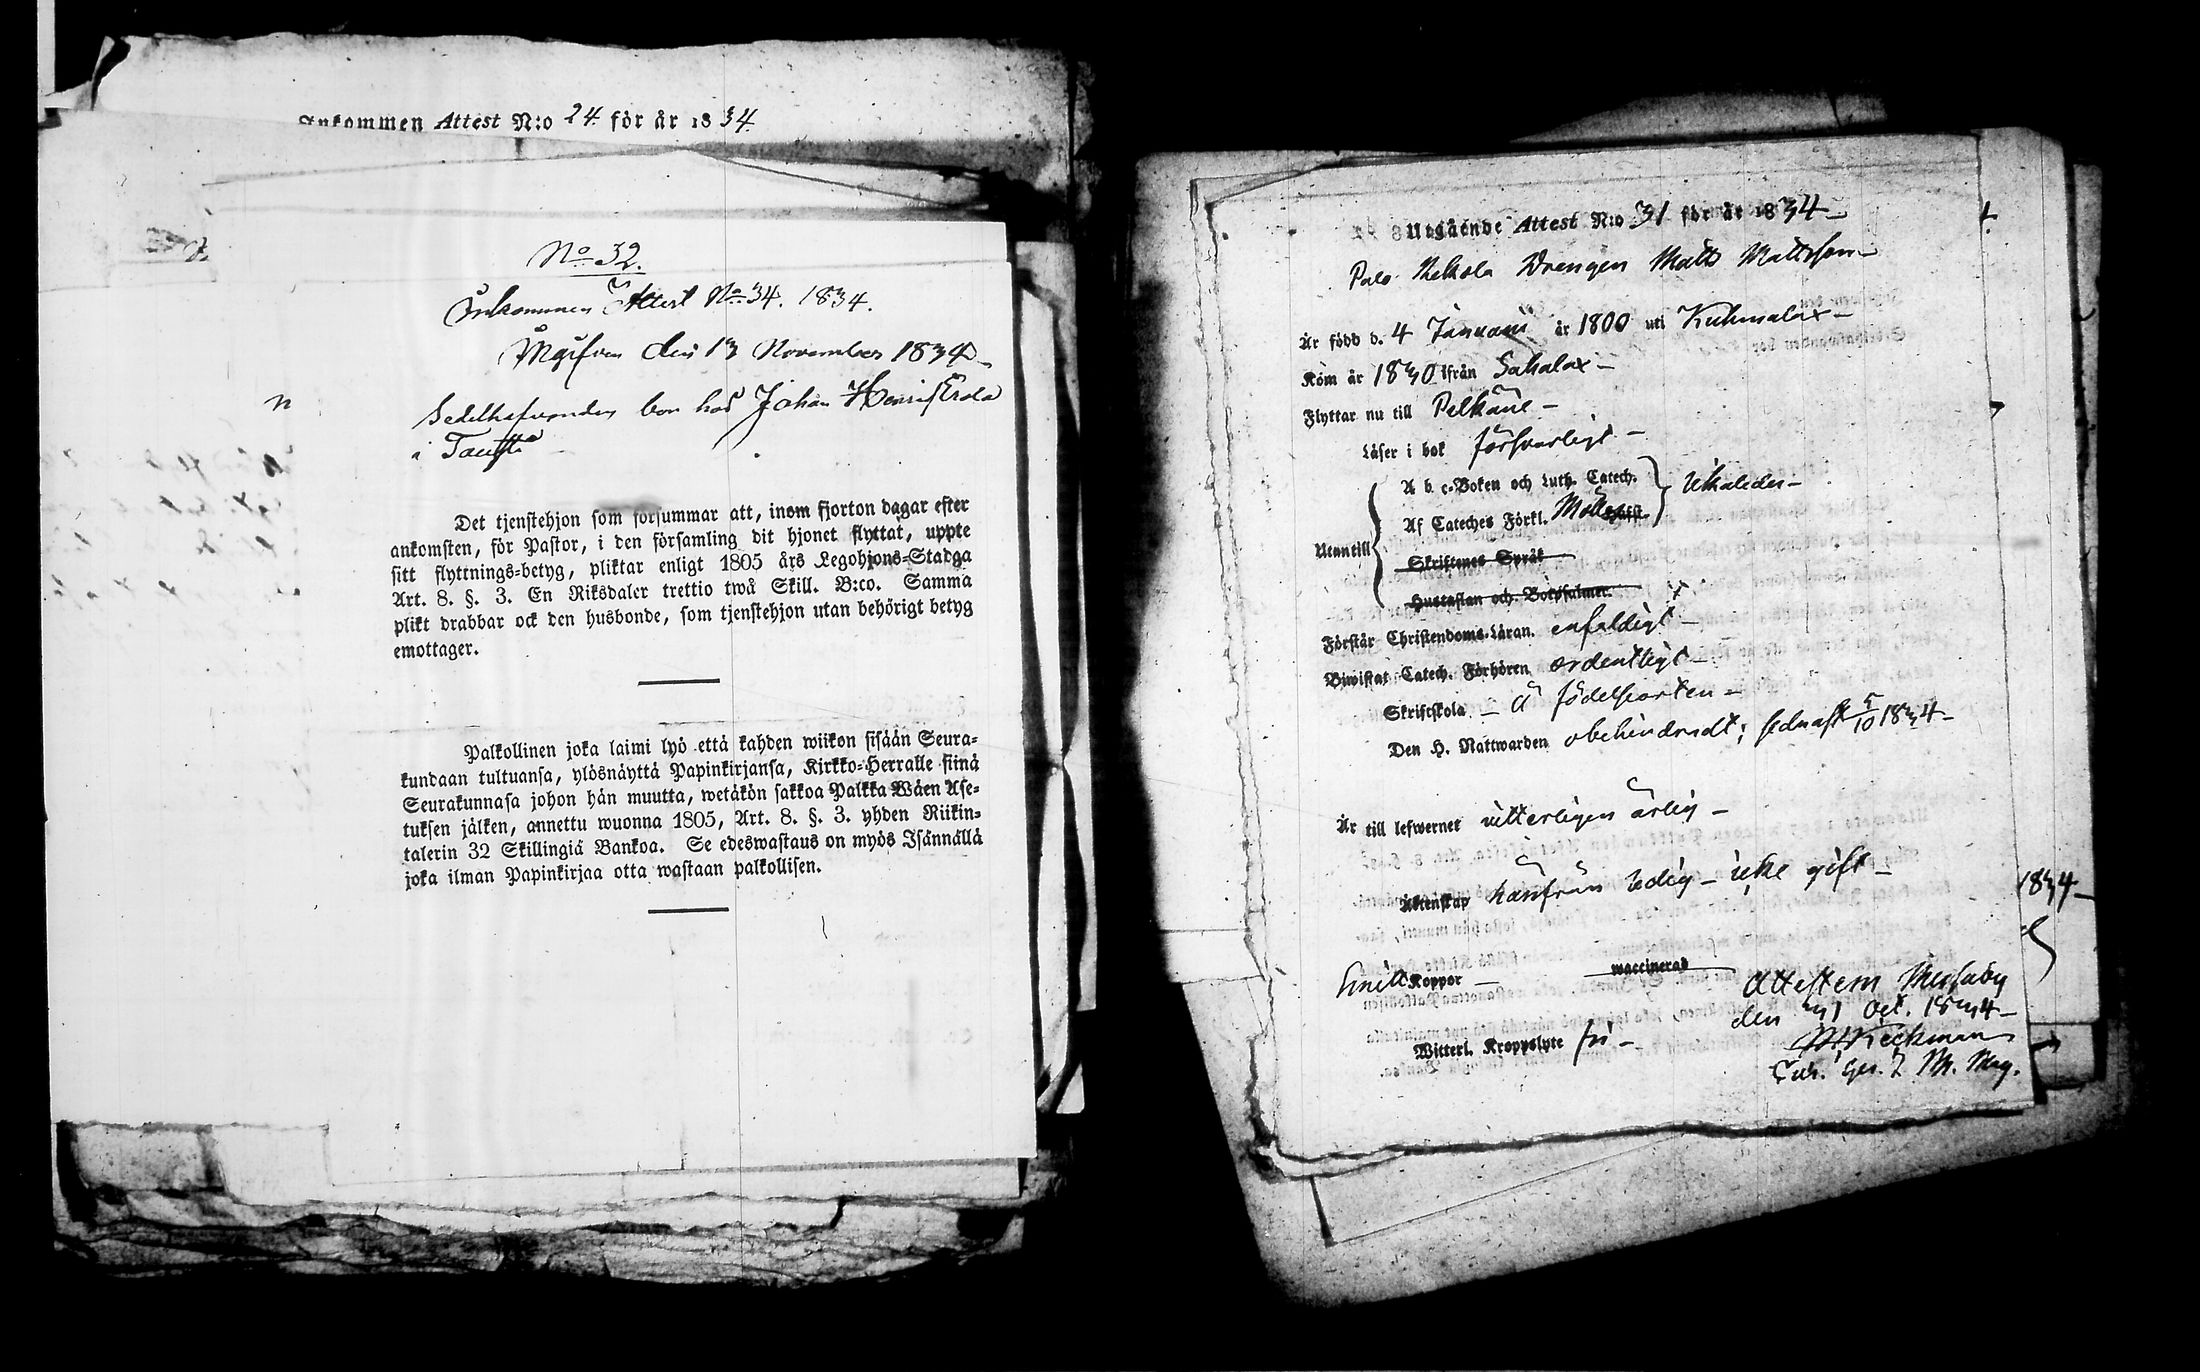 Ankommen Attest N:o 24 för år 1834.
No 32.
Inkommen Attest No 34. 1834.
Uppgifven den 13 November 1834
Sedelhafvanden bor hos Johan Henrik
i
Det tjenstehjon som försummar att, inom fjorton dagar efter
ankomsten, för Pastor, i den församling dit hjonet flyttat, uppte
sitt flyttnings=betyg, pliktar enligt 1805 års Legohjons=Stadga
Art. 8. §. 3. En Riksdaler trettio twå Skill. B:co. Samma
plikt drabbar ock den husbonde, som tjenstehjon utan behörigt betyg
emottager.
Palkollinen joka laimi lyö että kahden wiikon sisään Seura=
kundaan tultuansa, ylösnäyttä Papinkirjansa, Kirkko=Herralle siinä
Seurakunnasa johon hän muutta, wetäkön sakkoa Palkka Wäen Ase=
tuksen jälken, annettu wuonna 1805, Art. 8. §. 3. yhden Riikin=
talerin 32 Skillingiä Bankoa. Se edeswastaus on myös Isännällä
joka ilman Papinkirjaa otta wastaan palkollisen.
Utgående Attest N:o 31 för år 1834
Palo Drengen Matts Mattsson
Är född d. 4 Januari år 1800 uti Kuhmalax
Kom år 1830 ifrån Sahalax
Flyttar nu till Pelkäne
Läser i bok försvarligt
A b c=Boken och Luth. Catech.
Utantill Af Cateches Förkl.
Skriftenes Språk
Hustaflan och Botpsalmer.
Förstår Christendoms=Läran. enfaldigt
Biwistat Catech. Förhören ordentligt
Skriftskola å födelseorten
Den H. Nattwarden obehindradt; sednast 5/10 1834
Är till lefwernet witterligen ärlig
Äktenskap härifrån ledig icke gift
1834
Koppor waccinerad
Witterl. Kroppslyte fri
Attesterar Messuby
den 31 Oct. 1834